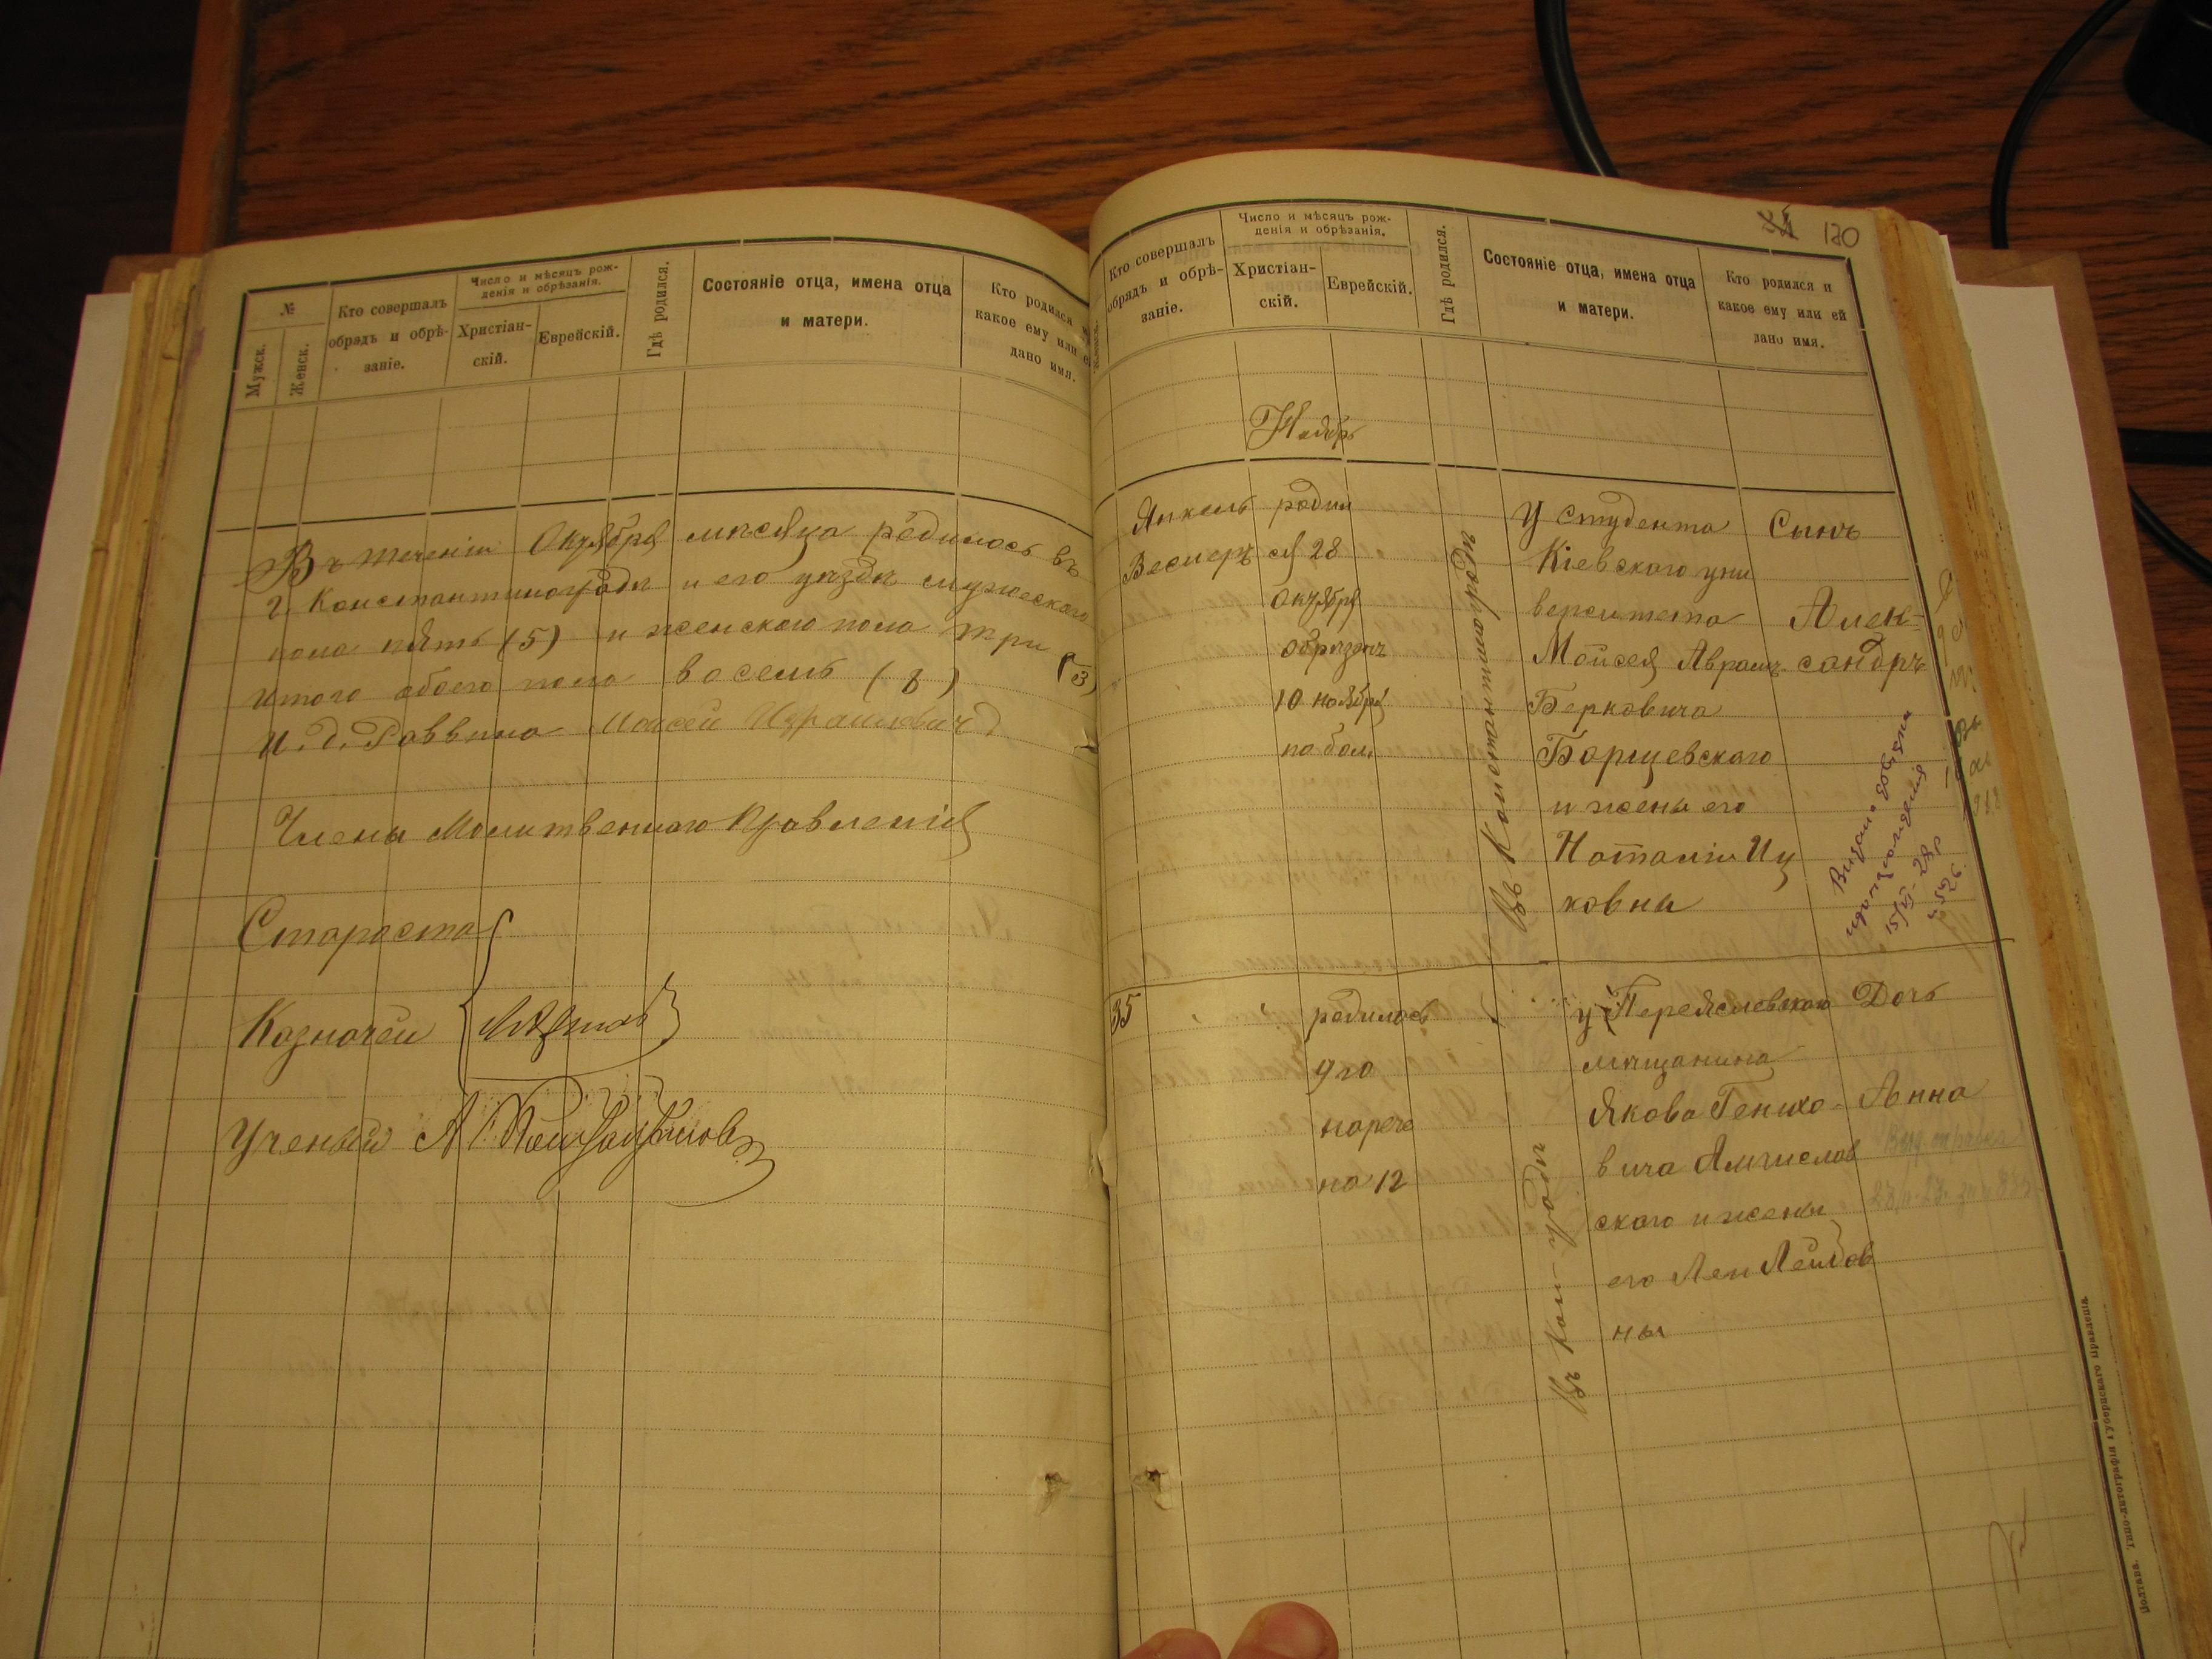 №
Мужск.
Женск.
Кто совершалъ
обрядъ и обрѣ-
заніе.
Число и мѣсяцъ рож-
денія и обрѣзанія.
Христіан-
скій.
Еврейскій.
Гдѣ родился.
Состояніе отца, имена отца
и матери.
Кто родился и
какое ему или е
дано имя.
Въ теченіи Октября мѣсяца родилось въ
г. Константиноградѣ и его уѣздѣ мужескаго
пола пять (5) и женскаго пола три (3)
итого обоего пола восемь (8)
И. д. Раввина Моисей Израилевич
Члены Молитвеннаго Правленія
Староста
Казначей
Ученый
120
Кто совершалъ
обрядъ и обрѣ-
заніе.
Число и мѣсяцъ рож-
денія и обрѣзанія.
Христіан-
скій.
Еврейскій.
Гдѣ родился.
Состояніе отца, имена отца
и матери.
Кто родился и
какое ему или ей
дано имя.
Ноябрь
Янкель
Веснеръ
родил
ся 28
октября
обрѣзанъ
10 ноября
по бол.
Въ Константиноградѣ
У студента
Кіевскаго уни
верситета
Мойсея Аврамъ
Берковича
Борщевскаго
и жены его
Наталіи Иц
ковны
Сынъ
Алек-
сандръ
15/XI-28 р
35
родилась
9го
нарече
на 12
Въ Кон-градѣ
у Переяславскаго
мѣщанина
Якова Генихо-
вича Амчислав
скаго и жены
его Леи Лейбов
ны
Дочь
Анна
Полтава. Типо-литографія Губернскаго Правленія.